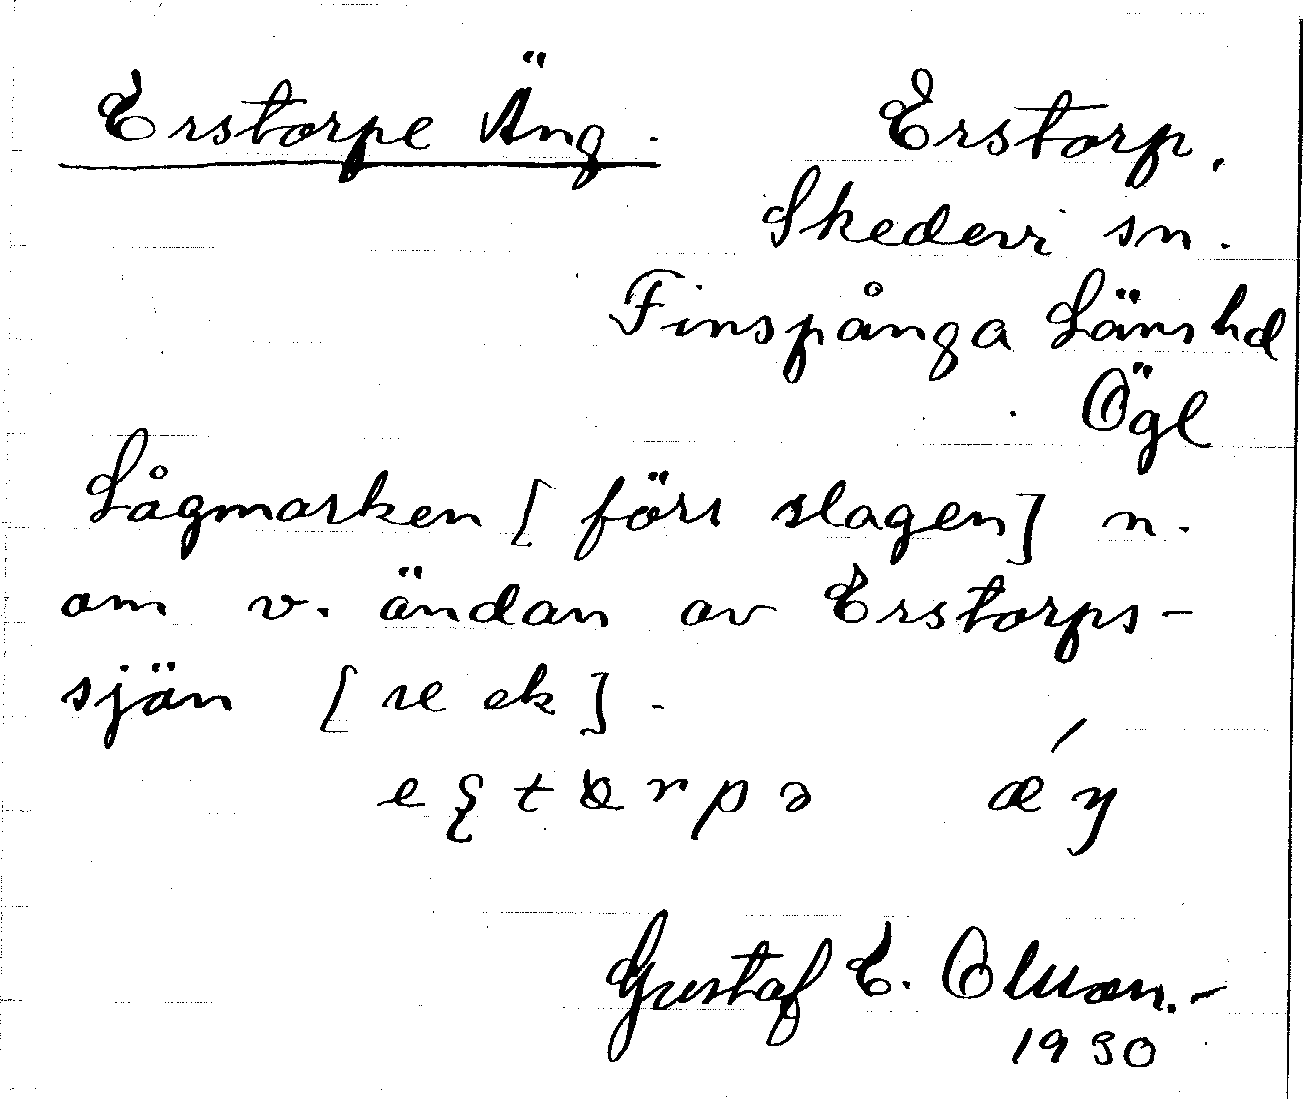 Erstorpe Äng. Erstorp.
Skedevi sn.
Finspånga Läns hd
Ögl
Lågmarken [förr slagen] n.
om v. ändan av Erstorps-
sjön [se ek].
Gustaf E. Olsson.-
1930